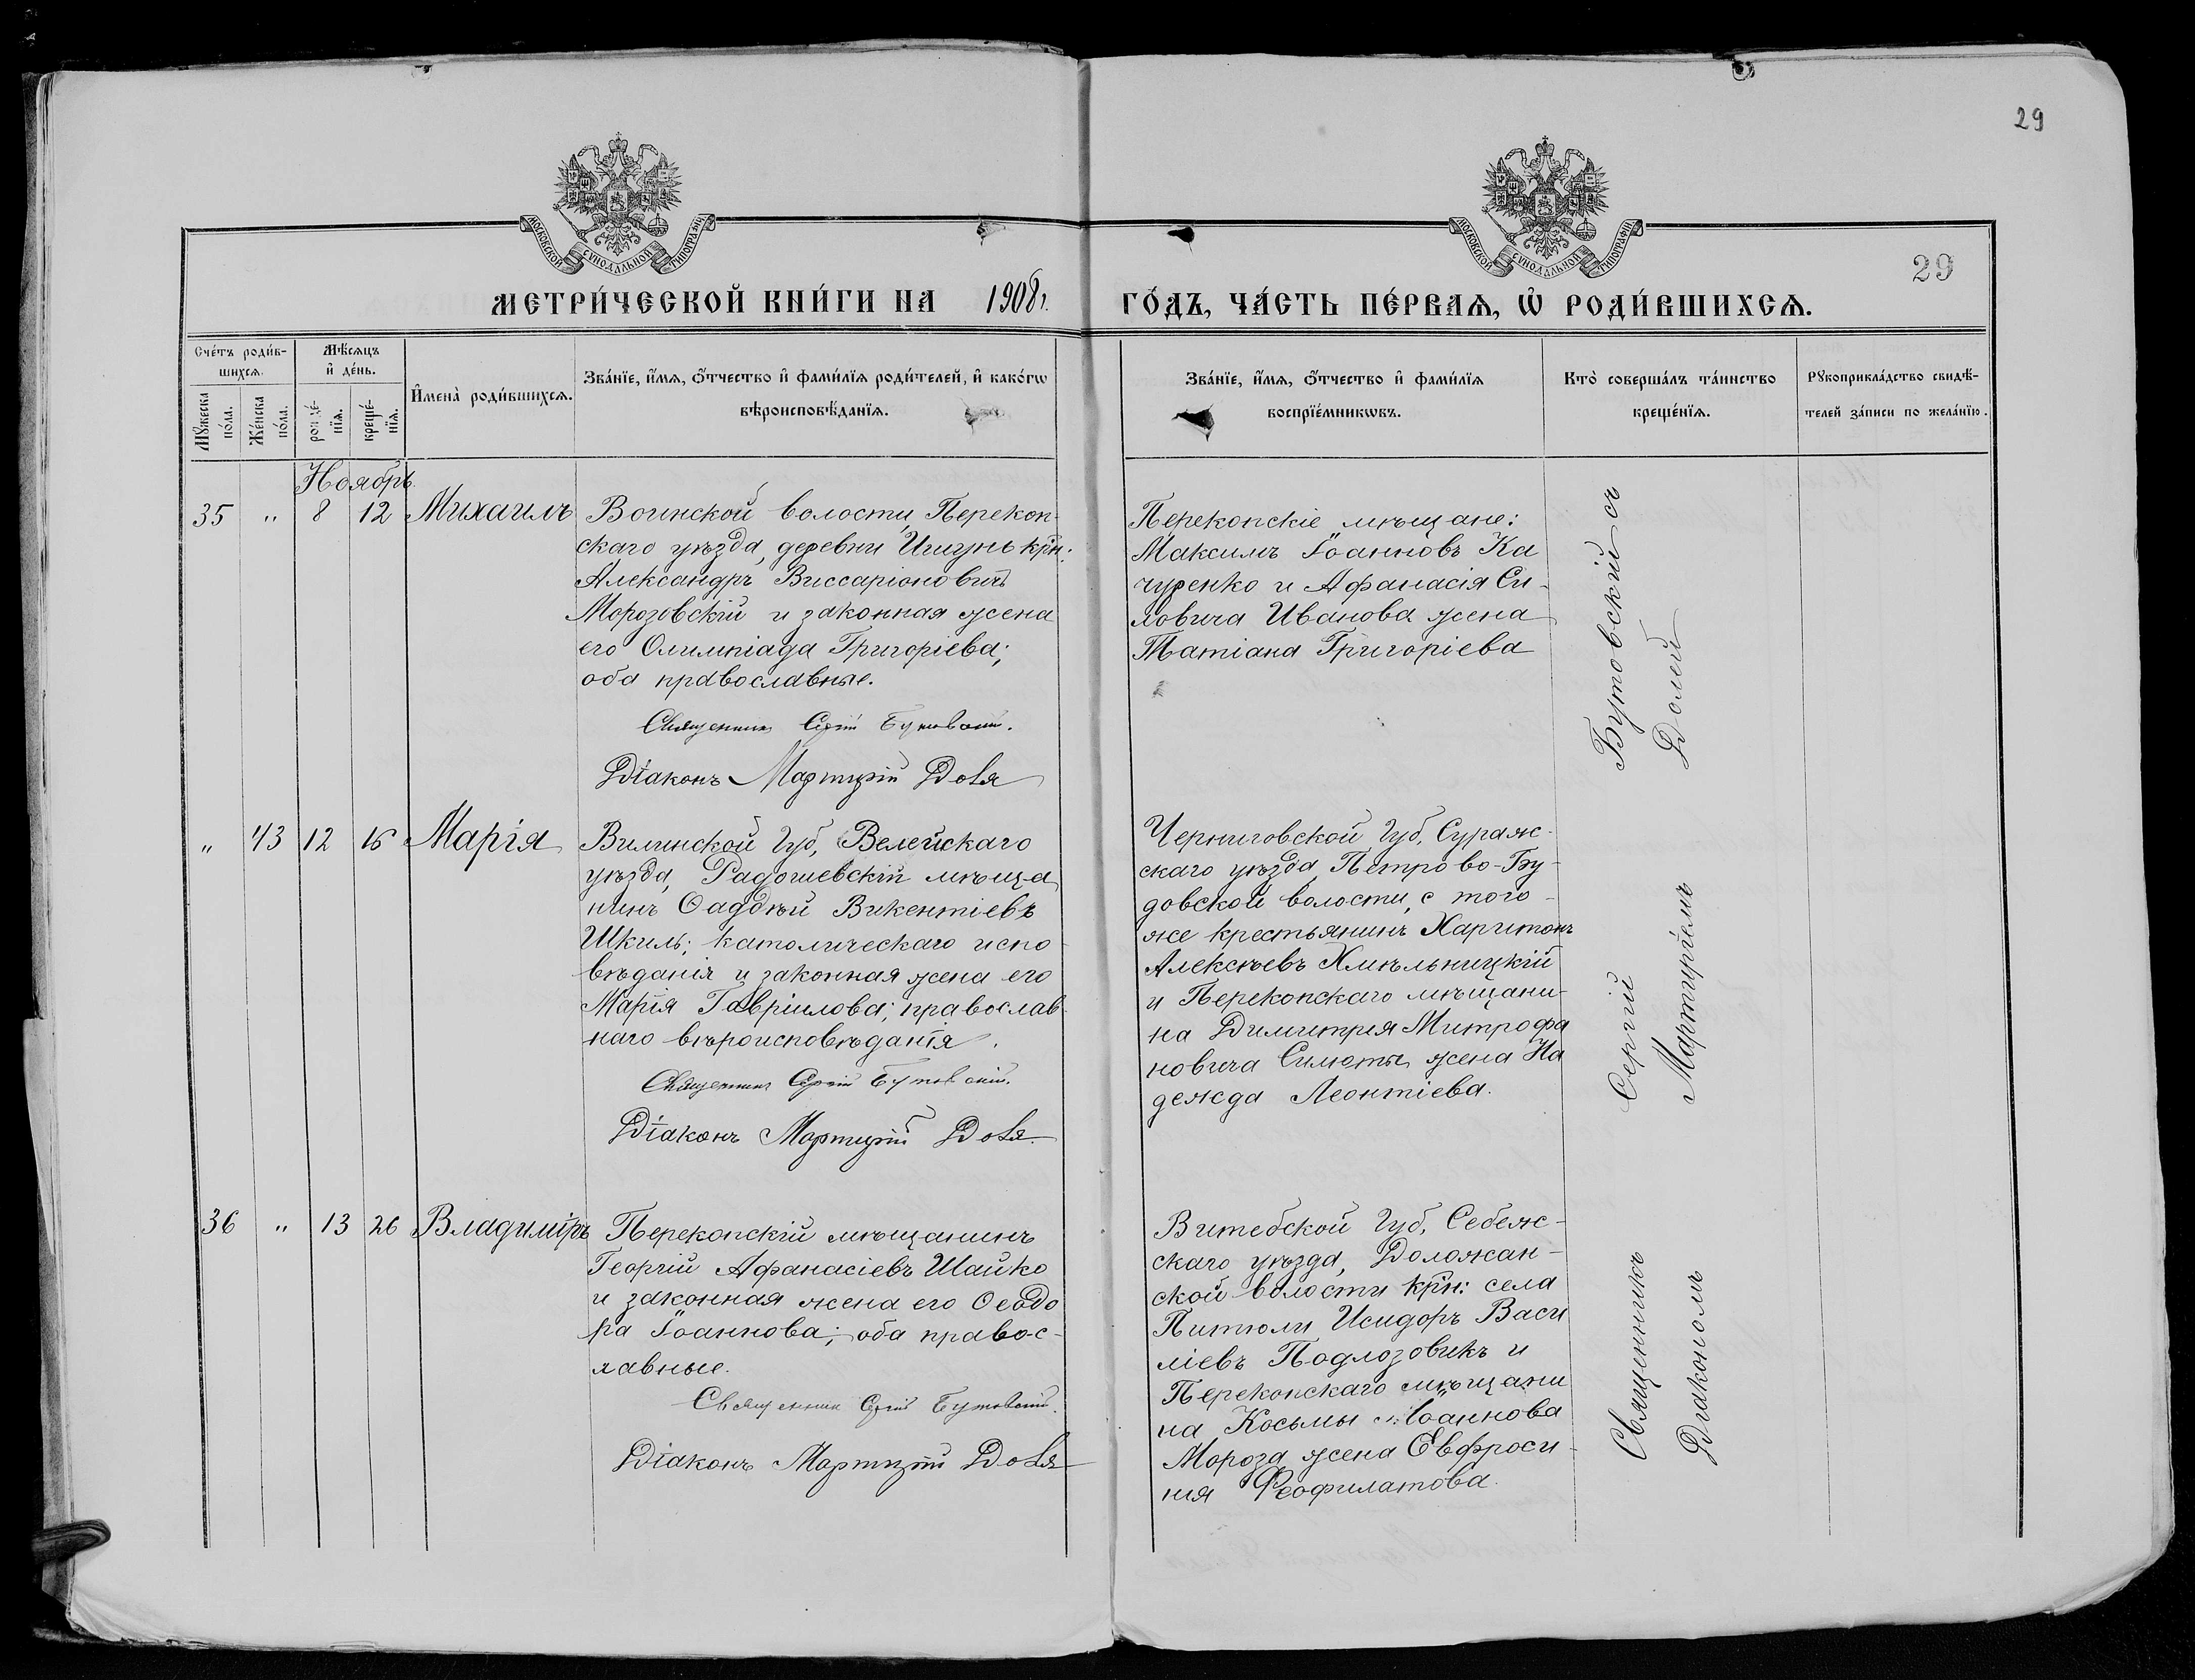 29
МОСКОВСКОЙ СУНОДАЛЬНОЙ ТИПОГРАФІИ
МОСКОВСКОЙ СУНОДАЛЬНОЙ ТИПОГРАФІИ
29
МЕТРИ́ЧЕСКОЙ КНИ́ГИ НА 1908 г.
ГО́ДЪ, ЧА́СТЬ ПЕ́РВАѦ, Ѽ РОДИ́ВШИХСѦ.
Сче́тъ роди́в-
шихсѧ.
Мꙋжеска
по́ла.
Же́нска
по́ла.
Мѣ́сѧцъ
и҆ де́нь.
рожде́-
нїѧ.
креще́-
нїѧ.
И҆мена̀ роди́вшихсѧ.
Зва́нїе, и҆́мѧ, ѻ҆́тчество и҆ фами́лїѧ роди́телей, и҆ како́гѡ
вѣроисповѣ́данїѧ.
Зва́нїе, и҆́мѧ, ѻ҆́тчество и҆ фами́лїѧ
воспрїе́мникѡвъ.
Кто̀ соверша́лъ та́инство
креще́нїѧ.
Рꙋкоприкла́дство свидѣ́-
телей за́писи по жела́нїю.
Ноябрь
35 " 8 12 Михаилъ
Воинской волости, Перекоп-
скаго уѣзда, деревни Ишунь кр̃н:
Александръ Виссаріоновичъ
Морозовскій и законная жена
его Олимпіада Григоріева;
оба православные.
Священникъ Сергій Бутовскій.
Діаконъ Мартирій Доля
Перекопскіе мѣщане:
Максимъ Іоанновъ Ка
чуренко и Афанасія Си-
ловича Иванова жена
Татіана Григоріева
" 43 12 16 Марія
Вилинской Губ, Велейскаго
уѣзда, Радошевскій мѣща
нинъ Ѳаддѣй Викентіевъ
Шкиль; католическаго испо-
вѣданія и законная жена его
Марія Гавріилова; православ
наго вѣроисповѣданія.
Священникъ Сергій Бутовскій.
Діаконъ Мартирій Доля
Черниговской Губ, Сураж-
скаго уѣзда, Петрово-Бу-
довской волости, с того-
же крестьянинъ Харитонъ
Алексѣевъ Хмѣльницкій
и Перекопскаго мѣщани-
на Димитрія Митрофа
новича Симоты жена На
дежда Леонтіева.
36 " 13 26 Владиміръ
Перекопскій мѣщанинъ
Георгій Афанасіевъ Шайко
и законная жена его Ѳеодо
ра Іоаннова; оба правос-
лавные.
Священникъ Сергій Бутовскій.
Діаконъ Мартирій Доля
Витебской Губ, Себеж-
скаго уѣзда, Доложан-
ской волости кр̃н: села
Питюли Исидоръ Васи
ліевъ Подлозовикъ и
Перекопскаго мѣщани
на Косьмы Іоаннова
Мороза жена Евфроси-
нія Феофилатова.
Священникъ Сергій Бутовскій съ
Діакономъ Мартиріемъ Долей